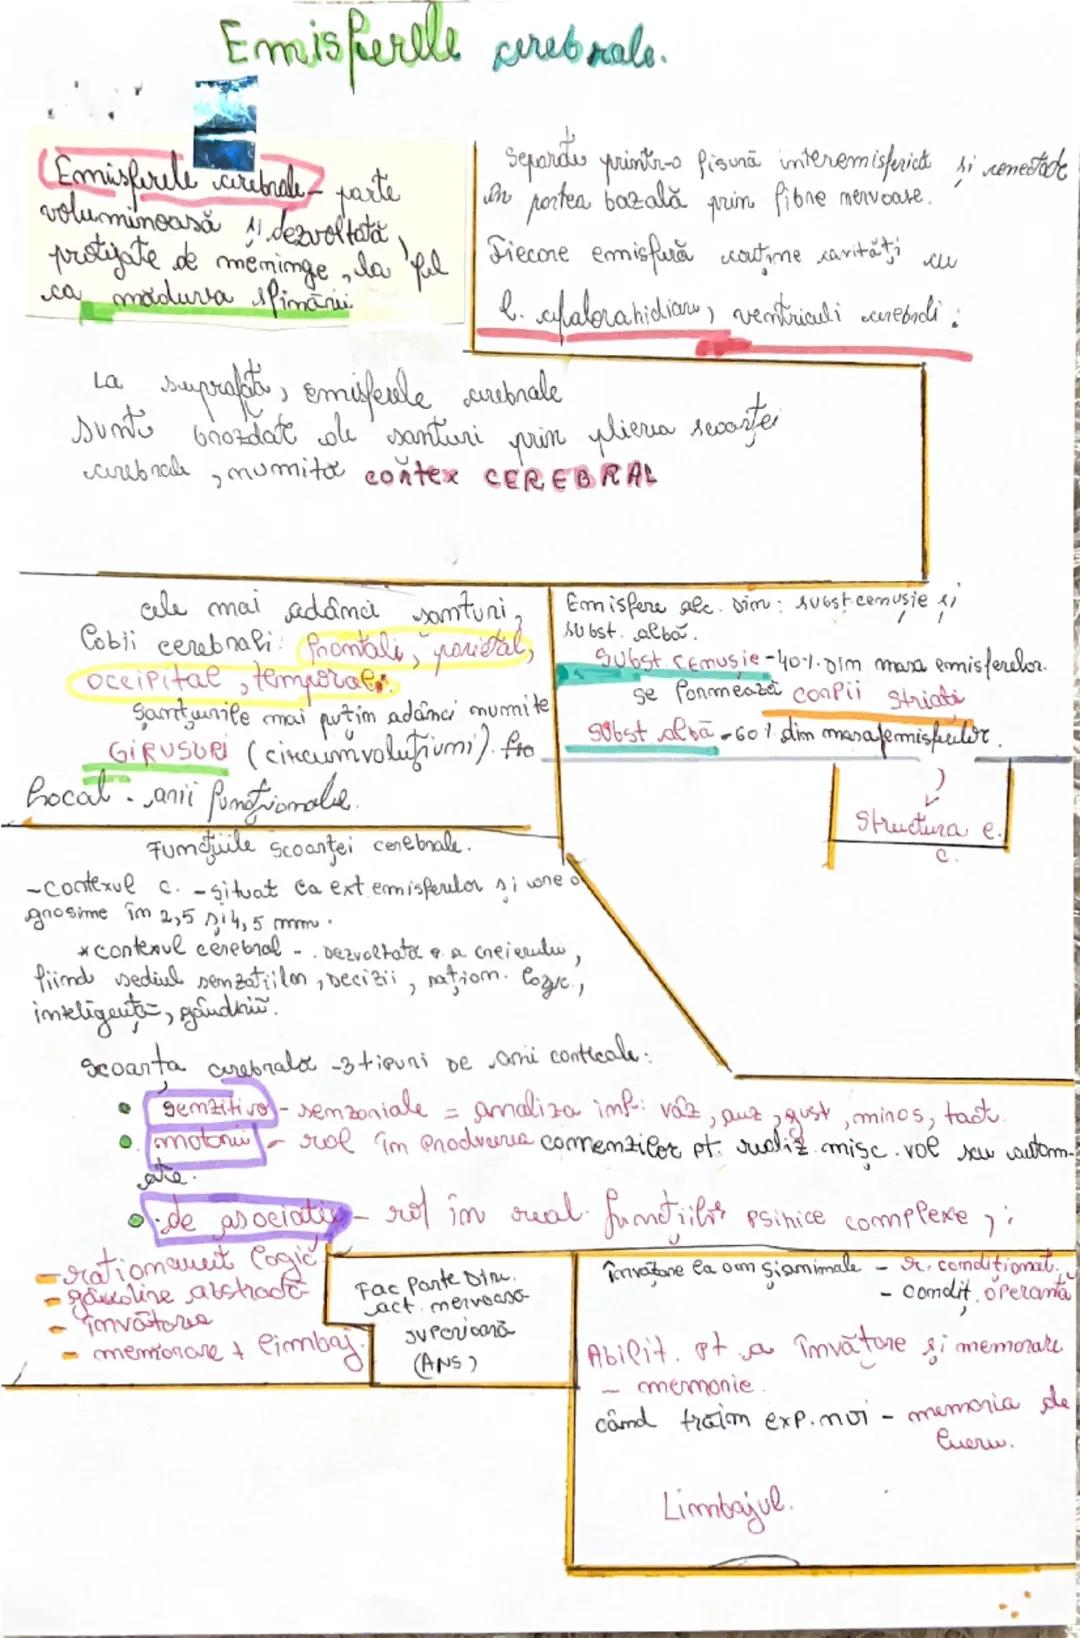 Emisferele cerebrale.
Emisferele cerebrale - parte
voluminoasă și dezvoltată,
protejate de meninge, la fel
ca măduva spinării
Separate printr-o fisură interemisferică și conectate
în partea bazală prin fibre nervoase.
Fiecare emisferă conține cavități cu
l. cefalorahidian, ventriculi cerebrali:
La suprafață, emisferele cerebrale
sunt brăzdate de șanțuri prin plierea scoarței
cerebrale, numită cortex CEREBRAL
cele mai adânci șanțuri,
Lobii cerebrali: frontali, parietal,
occipital, temporal.
Șanțurile mai puțin adânci numite
GIRUSURI (circumvoluțiuni). Fro
hocal - arii funcționale.
Emisfere alc. Din: subst. cenușie și
subst. albă.
Subst. cenușie - 40% din masa emisferelor.
se formează corpii striați
Subst. albă - 60% din masa emisferelor.
Structura e.
c.
Funcțiile scoarței cerebrale.
- Cortexul c. - situat la ext. emisferelor și are o
grosime în 2,5 și 4,5 mm.
* cortexul cerebral - dezvoltată p. a creierului,
fiind sediul senzațiilor, decizii, rațion. logic.,
inteligență, gândirii.
Scoarța cerebrală - 3 tipuri de arii corticale:
senzitivo - senzoriale = analiza inf: văz, auz, gust, miros, tact.
motorii - rol în producerea comenzilor pt. realiz. mișc. vol sau autom-
ate.
de asociație - rol în real. funcțiilor psihice complexe, :
- raționament logic
- gândire abstractă
- învățarea
- memorare + limbaj.
Fac parte din.
act. nervoasă
superioară
(ANS)
învățare la om și animale - r. condiționat.
- condiț. operantă
Abilit. pt a învățare și memorare
- memorie.
când trăim exp. noi - memoria de
lucru.
Limbajul.